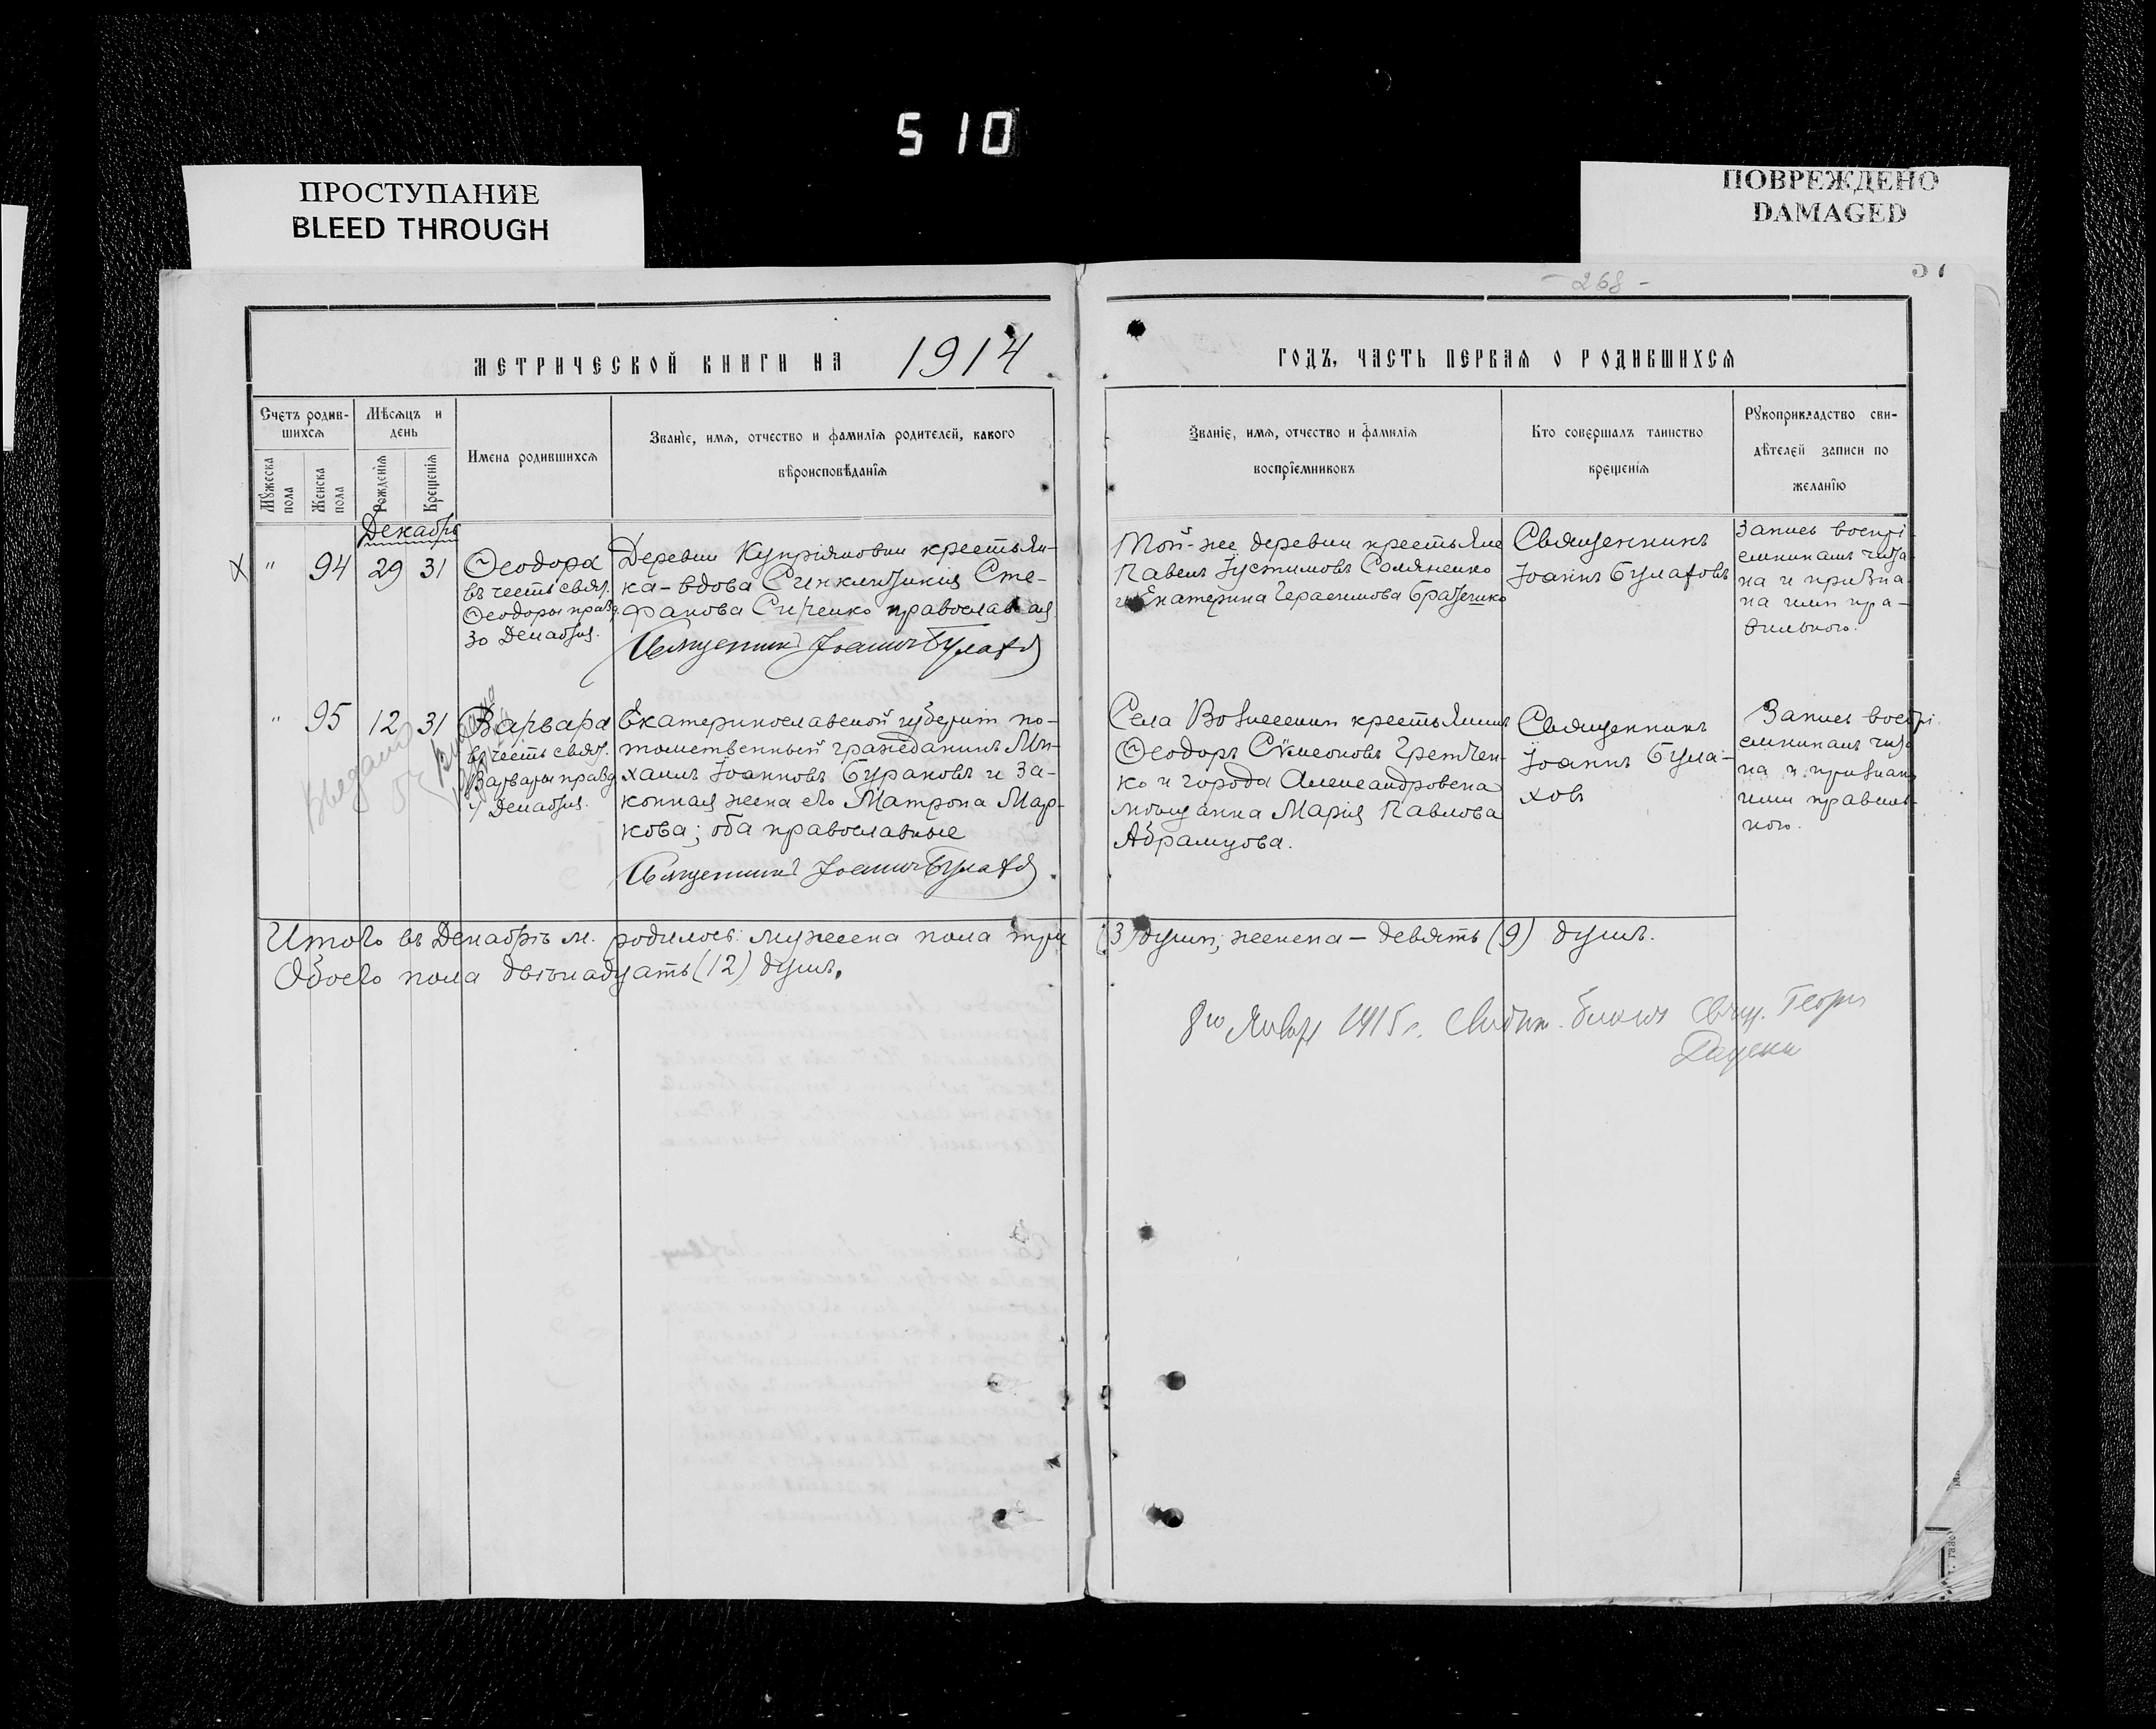 510
ПРОСТУПАНИЕ
BLEED THROUGH
ПОВРЕЖДЕНО
DAMAGED
- 268 -
МЕТРИЧЕСКОЙ КНИГИ НА 1914
ГОДЪ, ЧАСТЬ ПЕРВАЯ О РОДИВШИХСЯ
Счетъ родив-
шихся
Мужеска
пола
Женска
пола
Мѣсяцъ и
день
Рожденія
Крещенія
Имена родившихся
Званіе, имя, отчество и фамилія родителей, какого
вѣроисповѣданія
Званіе, имя, отчество и фамилія
воспріемниковъ
Кто совершалъ таинство
крещенія
Рукоприкладство сви-
дѣтелей записи по
желанію
Декабрь
" 94 29 31
Ѳеодора
въ честь свят.
Ѳеодоры празд.
30 Декабря.
Деревни Купріяновки крестьян-
ка-вдова Синклитикія Сте-
фанова православная
Священникъ Іоаннъ Булаховъ
Той-же деревни крестьяне
Павелъ Іустиновъ Соляненко
и Екатерина Герасимова
Священникъ
Іоаннъ Булаховъ
Запись воспрі-
емникамъ чита-
на и призна-
на ими пра-
вильною.
" 95 12 31
Варвара
въ честь свят.
Варвары празд.
4 Декабря.
Екатеринославской губерніи по-
томственный гражданинъ Ми-
хаилъ Іоанновъ Бурановъ и за-
конная жена его Матрона Мар-
кова; оба православные
Священникъ Іоаннъ Булаховъ
Села Вознесенки крестьянинъ
Ѳеодоръ Сѵмеоновъ
ко и города Александровска
мѣщанка Марія Павлова
Абрамцова.
Священникъ
Іоаннъ Була-
ховъ
Запись воспрі-
емникамъ чита-
на и признана
ими правиль-
ною.
Итого въ Декабрѣ м. родилось: мужеска пола три (3) души; женска - девять (9) душъ.
Обоего пола двѣнадцать (12) душъ.
8го Января 1915 г. Свящ. Георгій